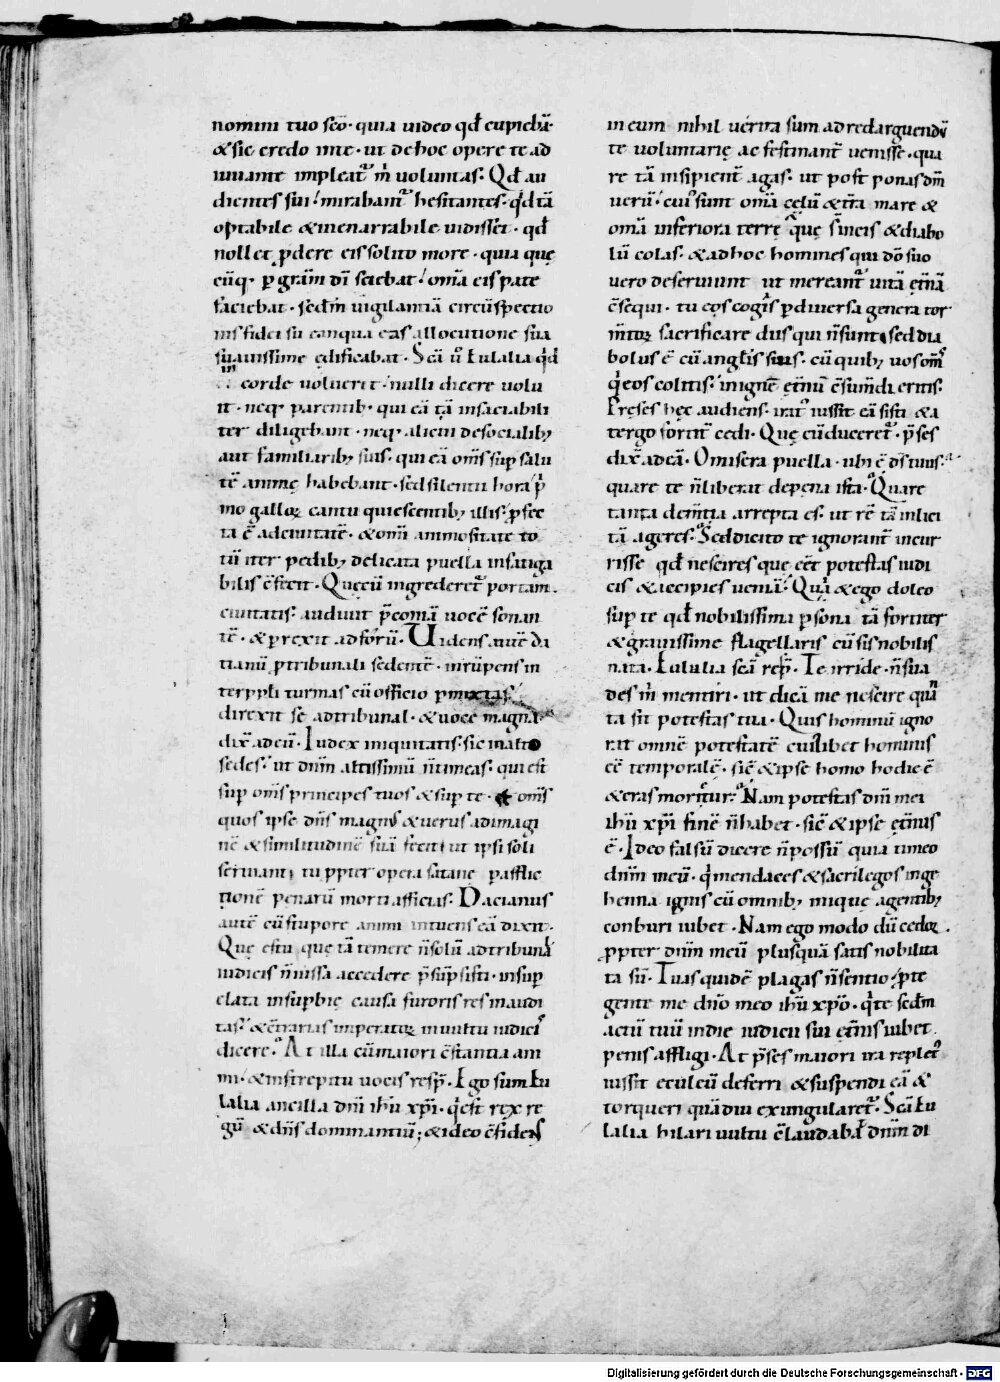 nomini tuo sc̄o · quia uideo qđ cupiebā ·
& sic credo inte · ut dehoc opere te ad
iuuante impleat᷑ m̄ uoluntas · Qđ au
dientes sui mirabant᷑ hesitantes · qđ tā
optabile & inenarrabile uidisset · qđ
nollet ꝓdere eis solito more · quia quę
cūq· ꝑ grām dī sciebat · omā eis pate
faciebat · uigilantiā circūspectio
nis fidei suę allocutione sua
suauissime edificabat · Scā ū Eulalia qđ
in corde uoluerit · nulli dicere uolu
it · neq· parentib· qui eā tā insaciabili
ter diligebant · neq· alicui desocialibꝫ
aut familiaribꝫ suis · qui eā om̄s suꝑ salu
tē animę habebant · sed silentii hora p̄
mo galloꝝ cantu quiescentibꝫ illis · ꝓfec
ta ē adciuitatē · & omī animositate to
tū iter pedibꝫ delicata puella infatiga
bilis c̄fecit · Quę cū ingrederet᷑ portam
ciuitatis · audiuit p̄conā uocē sonan
tē · & perexit adforū · Uidens autē da
tianū ꝓtribunali sedentē · inrūpens in
ter ppli turmas cū officio ꝑmixtas
direxit se adtribunal · & uoce magna
dix̄ adeū · Iudex iniquitatis · sic inalto
sedes · ut dnm̄ altissimū n̄ timeas · qui est
suꝑ om̄s principes tuos & suꝑ te · om̄s
quos ipse dn̄s magnus & uerus adimagi
nē & similitudinē suā fecit ut ipsi soli
seruiant tu ꝓpter opera satanę ꝑafflic
tionē penarū morti afficias · Dacianus
autē cū stupore animi intuens eā dixit ·
Quę es tu quę tā temere n̄ solū adtribunal
iudicis n̄ iussa accedere p̄sūpsisti · insuꝑ
elata insuꝑbię causa furoris res inaudi
tas · & c̄trarias imperatoꝝ inuultu iudicis
dicere · At illa cū maiori c̄stantia ani
mi · & instrepitu uocis resp̄ · Ego sum Eu
lalia ancilla dnī ihū xp̄i · q̄ est rex re
gū & dn̄s dominantiū; & ideo c̄fidens
in eum nihil uerita sum ad redarguendū
te uoluntarię ac festinant᷑ uenisse · qua
re tā insipient᷑ agas · ut post ponas dn̄m
uerū · cui᷒ sunt omā celū & trā mare &
omā inferiora terrę quę s̄ in eis & diabo
lū colas · & adhoc homines qui dō suo
uero deseruiunt ut mereant᷑ uitā et̄nā
c̄sequi · tu eos cogis ꝑdiuersa genera tor
m̄toꝝ sacrificare diis qui n̄ sunt sed dia
bolus ē cū anglis suis · cū quibꝫ uos om̄s
q̄ eos colitis · in ignē et̄nū c̄sum̄di eritis ·
Preses hęc audiens · irat᷒ iussit eā sisti & a
tergo fortit᷑ cedi · Quę cū duceret᷑ · p̄ses
dix̄ adeā · O misera puella · ubi ē ds̄ tuus ·
quare te n̄ liberat depena ista · Quare
tanta dem̄tia arrepta es · ut rē tā inlici
tā ageres · Sed dicito te ignorant᷑ incur
risse qđ nescires quę eēt potestas iudi
cis & accipies ueniā · Quia & ego doleo
suꝑ te qđ nobilissima ꝑsona tā fortiter
& grauissime flagellaris cū sis nobilis
nata · Eulalia scā resp̄ · Te irride · n̄ sua
des m̄ mentiri · ut dicā me nescire quan
ta sit potestas tua · Quis hominū igno
rat omnē potestatē cuiuslibet hominis
eē temporalē · sic̄ & ipse homo hodie ē
& cras morit᷑ur · Nam potestas dnī mei
ihū xp̄i finē n̄ habet · sic̄ & ipse et̄nus
ē · Ideo falsū dicere n̄ possū quia timeo
dnm̄ meū · q̄ mendaces & sacrilegos inge
henna ignis cū omnibꝫ inique agentibꝫ
conburi iubet · Nam ego modo dū cedoꝝ
ꝓpter dnm̄ meū plusquā satis nobilita
ta sū · Tuas quidē plagas n̄ sentio ꝓte
gente me dnō meo ihū xp̄o · q̄ te sedm̄
actū tuū indie iudicii sui et̄nis iubet
penis affligi · At p̄ses maiori ira replet᷒
iussit eculeū deferri & suspendi eā &
torqueri quādiu exungularet᷑ · Scā Eu
lalia hilari uultu c̄laudabat dnm̄ di
Digitalisierung gefördert durch die Deutsche Forschungsgemeinschaft - DFG